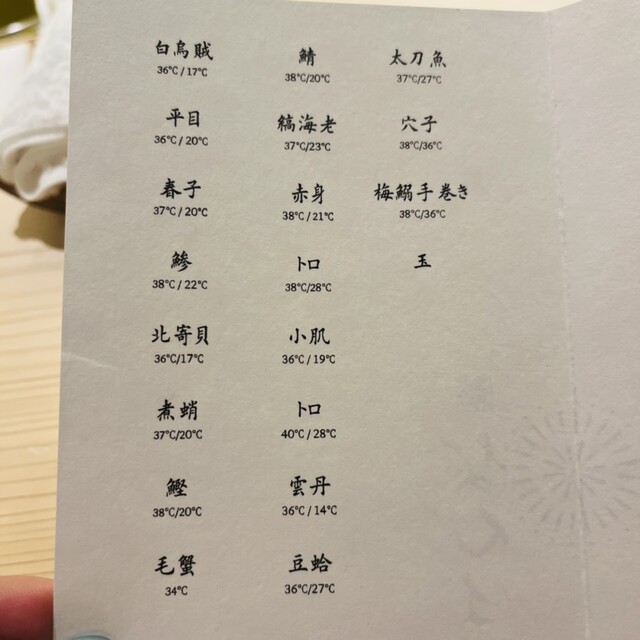 白烏賊
36℃ / 17℃
平目
36℃ / 20℃
春子
37℃ / 20℃
鯵
38℃ / 22℃
北寄貝
36℃/17℃
煮蛸
37℃/20℃
鰹
38℃/20℃
毛蟹
34℃
鯖
38℃/20℃
縞海老
37℃/23℃
赤身
38℃ / 21℃
トロ
38℃/28℃
小肌
36℃ / 19℃
トロ
40℃ / 28℃
雲丹
36℃ / 14℃
豆蛤
36℃/27℃
太刀魚
37℃/27℃
穴子
38℃/36℃
梅鰯手巻き
38℃/36℃
玉